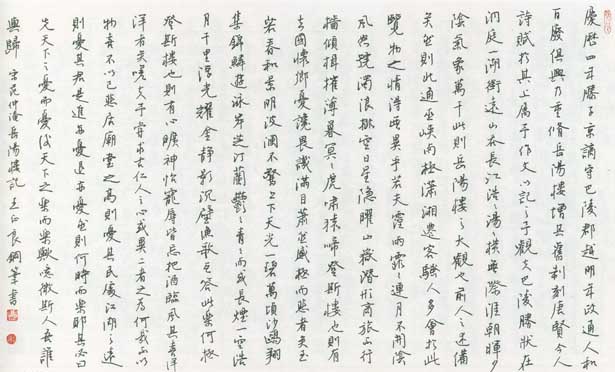 慶歷四年滕子京謫守巴陵郡越明年政通人和
百廢俱興乃重脩岳陽樓增其舊制刻唐賢今人
詩賦於其上屬予作文以記之予觀夫巴陵勝狀在
洞庭一湖銜遠山吞長江浩浩湯湯橫無際涯朝暉夕
陰氣象萬千此則岳陽樓之大觀也前人之述備
矣然則北通巫峽南極瀟湘遷客騷人多會於此
覽物之情得無異乎若夫霪雨霏霏連月不開陰
風怒號濁浪排空日星隱曜山嶽潛形商旅不行
檣傾楫摧薄暮冥冥虎嘯猿啼登斯樓也則有
去國懷鄉憂讒畏譏滿目蕭然感極而悲者矣至
若春和景明波瀾不驚上下天光一碧萬頃沙鷗翔
集錦鱗游泳岸芷汀蘭鬱鬱青青而或長煙一空皓
月千里浮光耀金靜影沉璧漁歌互答此樂何極
登斯樓也則有心曠神怡寵辱皆忘把酒臨風其喜洋
洋者矣嗟夫予嘗求古仁人之心或異二者之為何哉不以
物喜不以己悲居廟堂之高則憂其民處江湖之遠
則憂其君是進亦憂退亦憂然則何時而樂耶其必曰
先天下之憂而憂後天下之樂而樂歟噫微斯人吾誰
與歸 宋范仲淹岳陽樓記 王正良鋼筆書